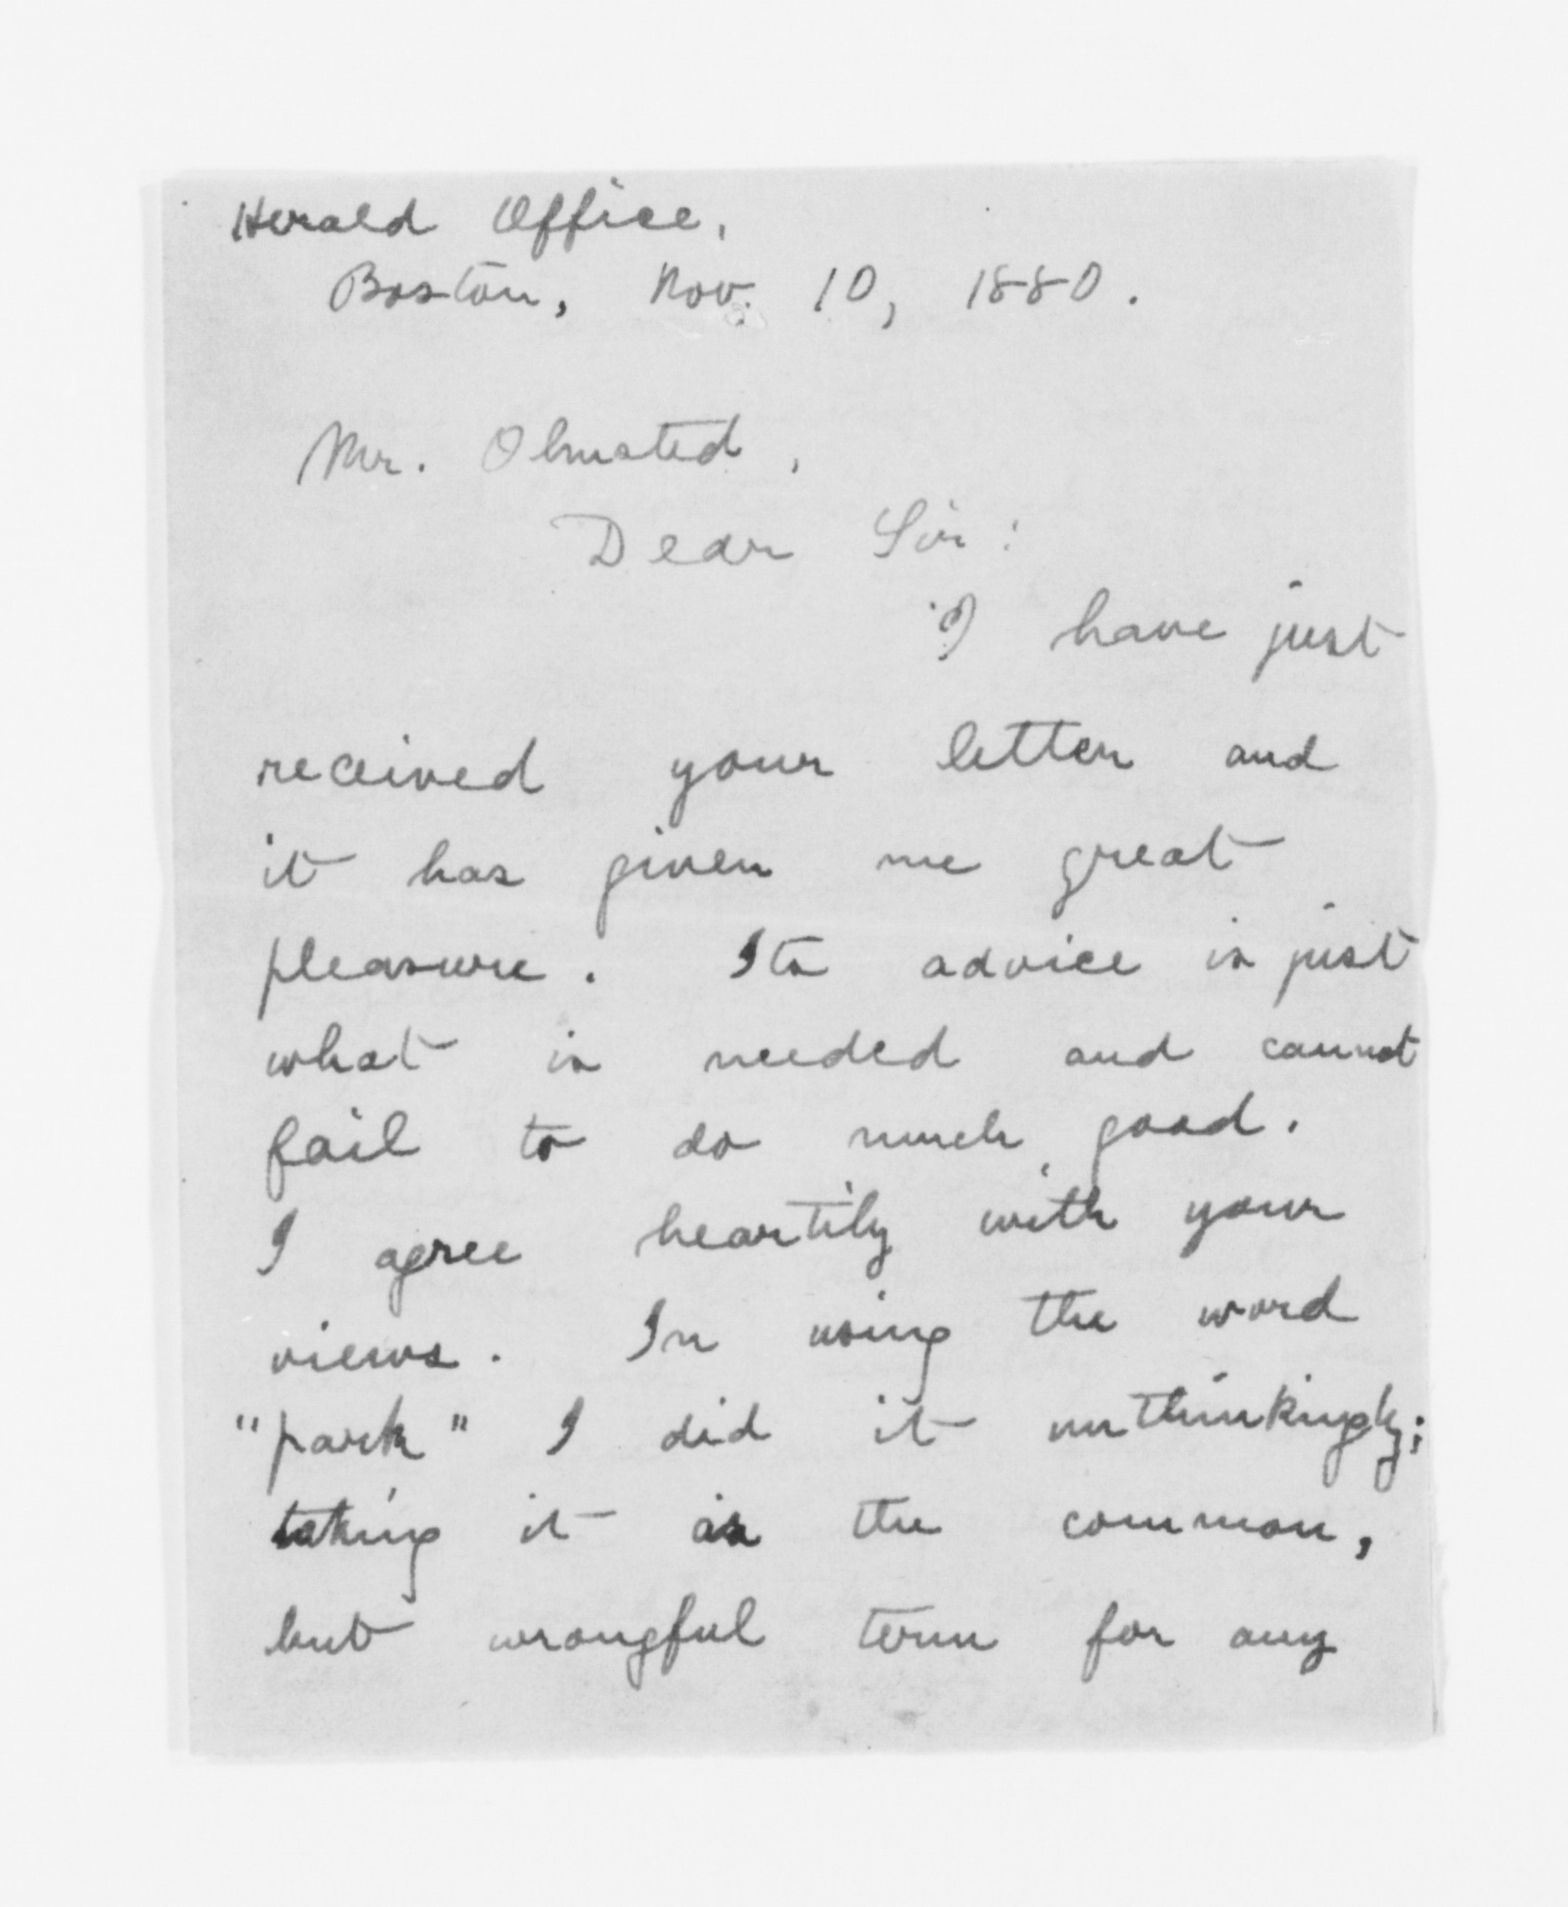 Herald Office,
Boston, Nov. 10, 1880.
Mr. Olmsted,
Dear Sir:
I have just
received your letter and
it has given me great
pleasure. Its advice is just
what is needed and cannot
fail to do much good.
I agree heartily with your
views. In using the word
"park" I did it unthinkingly;
taking it as the common,
but wrongful term for any